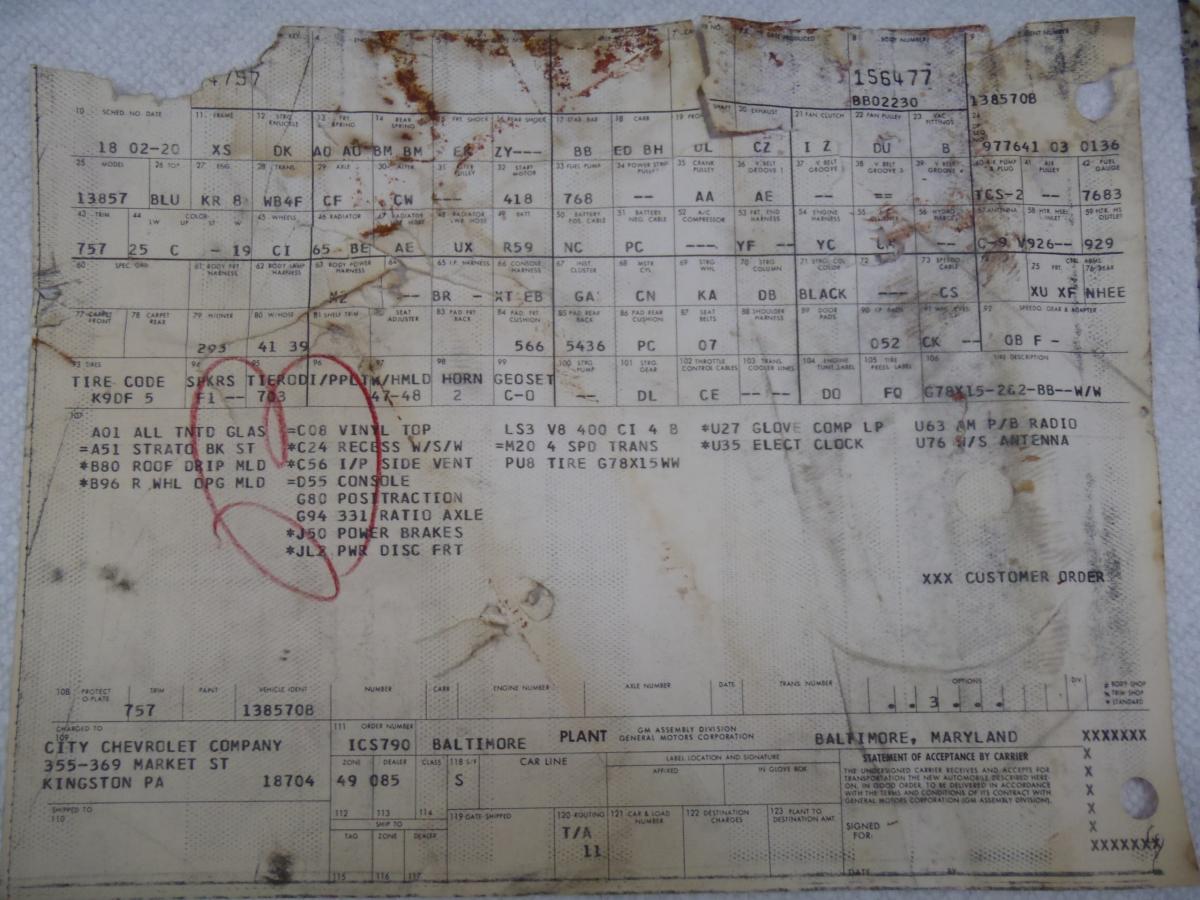 4/57 156477
BB02230 138570B
10 SCHED. NO DATE 11. FRAME 12 STRG KNUCKLE 13 FRT SPRING 14 REAR SPRING 15 FRT SHOCK 16 REAR SHOCK 17 STAB BAR 18 CARB 20 EXHAUST 21 FAN CLUTCH 22 FAN PULLEY 23 VAC FITTINGS
18 02-20 XS DK AO AO BM BM ER ZY--- BB ED BH OL CZ I Z DU B 977641 03 0136
25 MODEL 26 TOP 27 ENG 28 TRANS. 29 AXLE 32 START MOTOR 33 FUEL PUMP 34 POWER STRG PULLEY 35 CRANK PULLEY 36 V BELT GROOVE 1 37 V BELT GROOVE 38 V BELT GROOVE 3 39 V BELT GROOVE 42 FUEL GAUGE
13857 BLU KR 8 WB4F CF CW --- 418 768 -- AA AE -- == TCS-2 -- 7683
43 TRIM 44 LW COLOR UP ST W 45 WHEELS 46 RADIATOR 47 RADIATOR UPR HOSE 48 RADIATOR LWR HOSE 49 BATT 50 BATTERY POS. CABLE 51 BATTERY NEG. CABLE 52 A/C COMPRESSOR 53 FRT. END HARNESS 54 ENGINE HARNESS 57 ANTENNA 58 HTR. HSE INLET 59 HTR. HS OUTLET
757 25 C - 19 CI 65 BE AE UX R59 NC PC --- YF -- YC C-9 V926-- 929
60 SPEC. ORN 61 BODY FRT HARNESS 62 BODY LAMP HARNESS 63 BODY POWER HARNESS 64 65 I.P. HARNESS 66 CONSOLE HARNESS 67 INST. CLUSTER 68 MSTR CYL 69 STRG WHL 70 STRG COLUMN 71 STRG COL COLOR 72 73 SPEEDO CABLE 75 FRT. CTRL ARMS 76 REAR
XZ -- BR - XT EB GA CN KA DB BLACK --- CS XU XF NHEE
77 CARPET FRONT 78 CARPET REAR 79 H/LINER 80 W/HOSE 81 SHELF TRIM 82 SEAT ADJUSTER 83 PAD FRT BACK 84 PAD FRT. CUSHION 85 PAD REAR BACK 86 PAD REAR CUSHION 87 SEAT BELTS 88 SHOULDER HARNESS 89 DOOR PADS 92 SPEEDO GEAR & ADAPTER
293 41 39 566 5436 PC 07 052 CK -- OB F -
93 TIRES 95 96 97 98 99 100 STRG PUMP 101 STRG. GEAR 102 THROTTLE CONTROL CABLES 103 TRANS. COOLER LINES 104 ENGINE TUNE LABEL 105 TIRE PRESS LABEL 106 TIRE DESCRIPTION
TIRE CODE SPKRS TIERODI/PPLTW/HMLD HORN GEOSET
K9DF 5 F1 -- 703 47-48 2 C-0 -- DL CE -- DO FQ G78X15-2&2-BB--W/W
107
A01 ALL TNTD GLAS =C08 VINYL TOP LS3 V8 400 CI 4 B *U27 GLOVE COMP LP U63 AM P/B RADIO
=A51 STRATO BK ST *C24 RECESS W/S/W =M20 4 SPD TRANS *U35 ELECT CLOCK U76 W/S ANTENNA
*B80 ROOF DRIP MLD *C56 I/P SIDE VENT PU8 TIRE G78X15WW
*B96 R WHL OPG MLD =D55 CONSOLE
G80 POSITRACTION
G94 331 RATIO AXLE
*J50 POWER BRAKES
*JL2 PWR DISC FRT
XXX CUSTOMER ORDER
108 PROTECT O-PLATE TRIM PAINT VEHICLE IDENT NUMBER CARB ENGINE NUMBER AXLE NUMBER DATE TRANS NUMBER OPTIONS DIV. BODY SHOP
TRIM SHOP
STANDARD
757 138570B . . 3 . . .
CHARGED TO
109
CITY CHEVROLET COMPANY
355-369 MARKET ST
KINGSTON PA 18704
111 ORDER NUMBER
ICS790 BALTIMORE PLANT GM ASSEMBLY DIVISION
GENERAL MOTORS CORPORATION BALTIMORE, MARYLAND XXXXXXX
ZONE DEALER CLASS 118 S/F CAR LINE LABEL LOCATION AND SIGNATURE
AFFIXED IN GLOVE BOX
49 085 S
STATEMENT OF ACCEPTANCE BY CARRIER
THE UNDERSIGNED CARRIER RECEIVES AND ACCEPTS FOR
TRANSPORTATION THE NEW AUTOMOBILE DESCRIBED HERE-
ON, IN GOOD ORDER, TO BE DELIVERED IN ACCORDANCE
WITH THE TERMS AND CONDITIONS OF ITS CONTRACT WITH
GENERAL MOTORS CORPORATION (GM ASSEMBLY DIVISION).
X
X
X
X
X
XXXXXXX
SHIPPED TO
110
112 113 114
SHIP TO
TAG ZONE DEALER
115 116 117
119 DATE SHIPPED 120 ROUTING 121 CAR & LOAD NUMBER 122 DESTINATION CHARGES 123 PLANT TO DESTINATION AMT.
T/A
11
SIGNED
FOR:
DATE BY